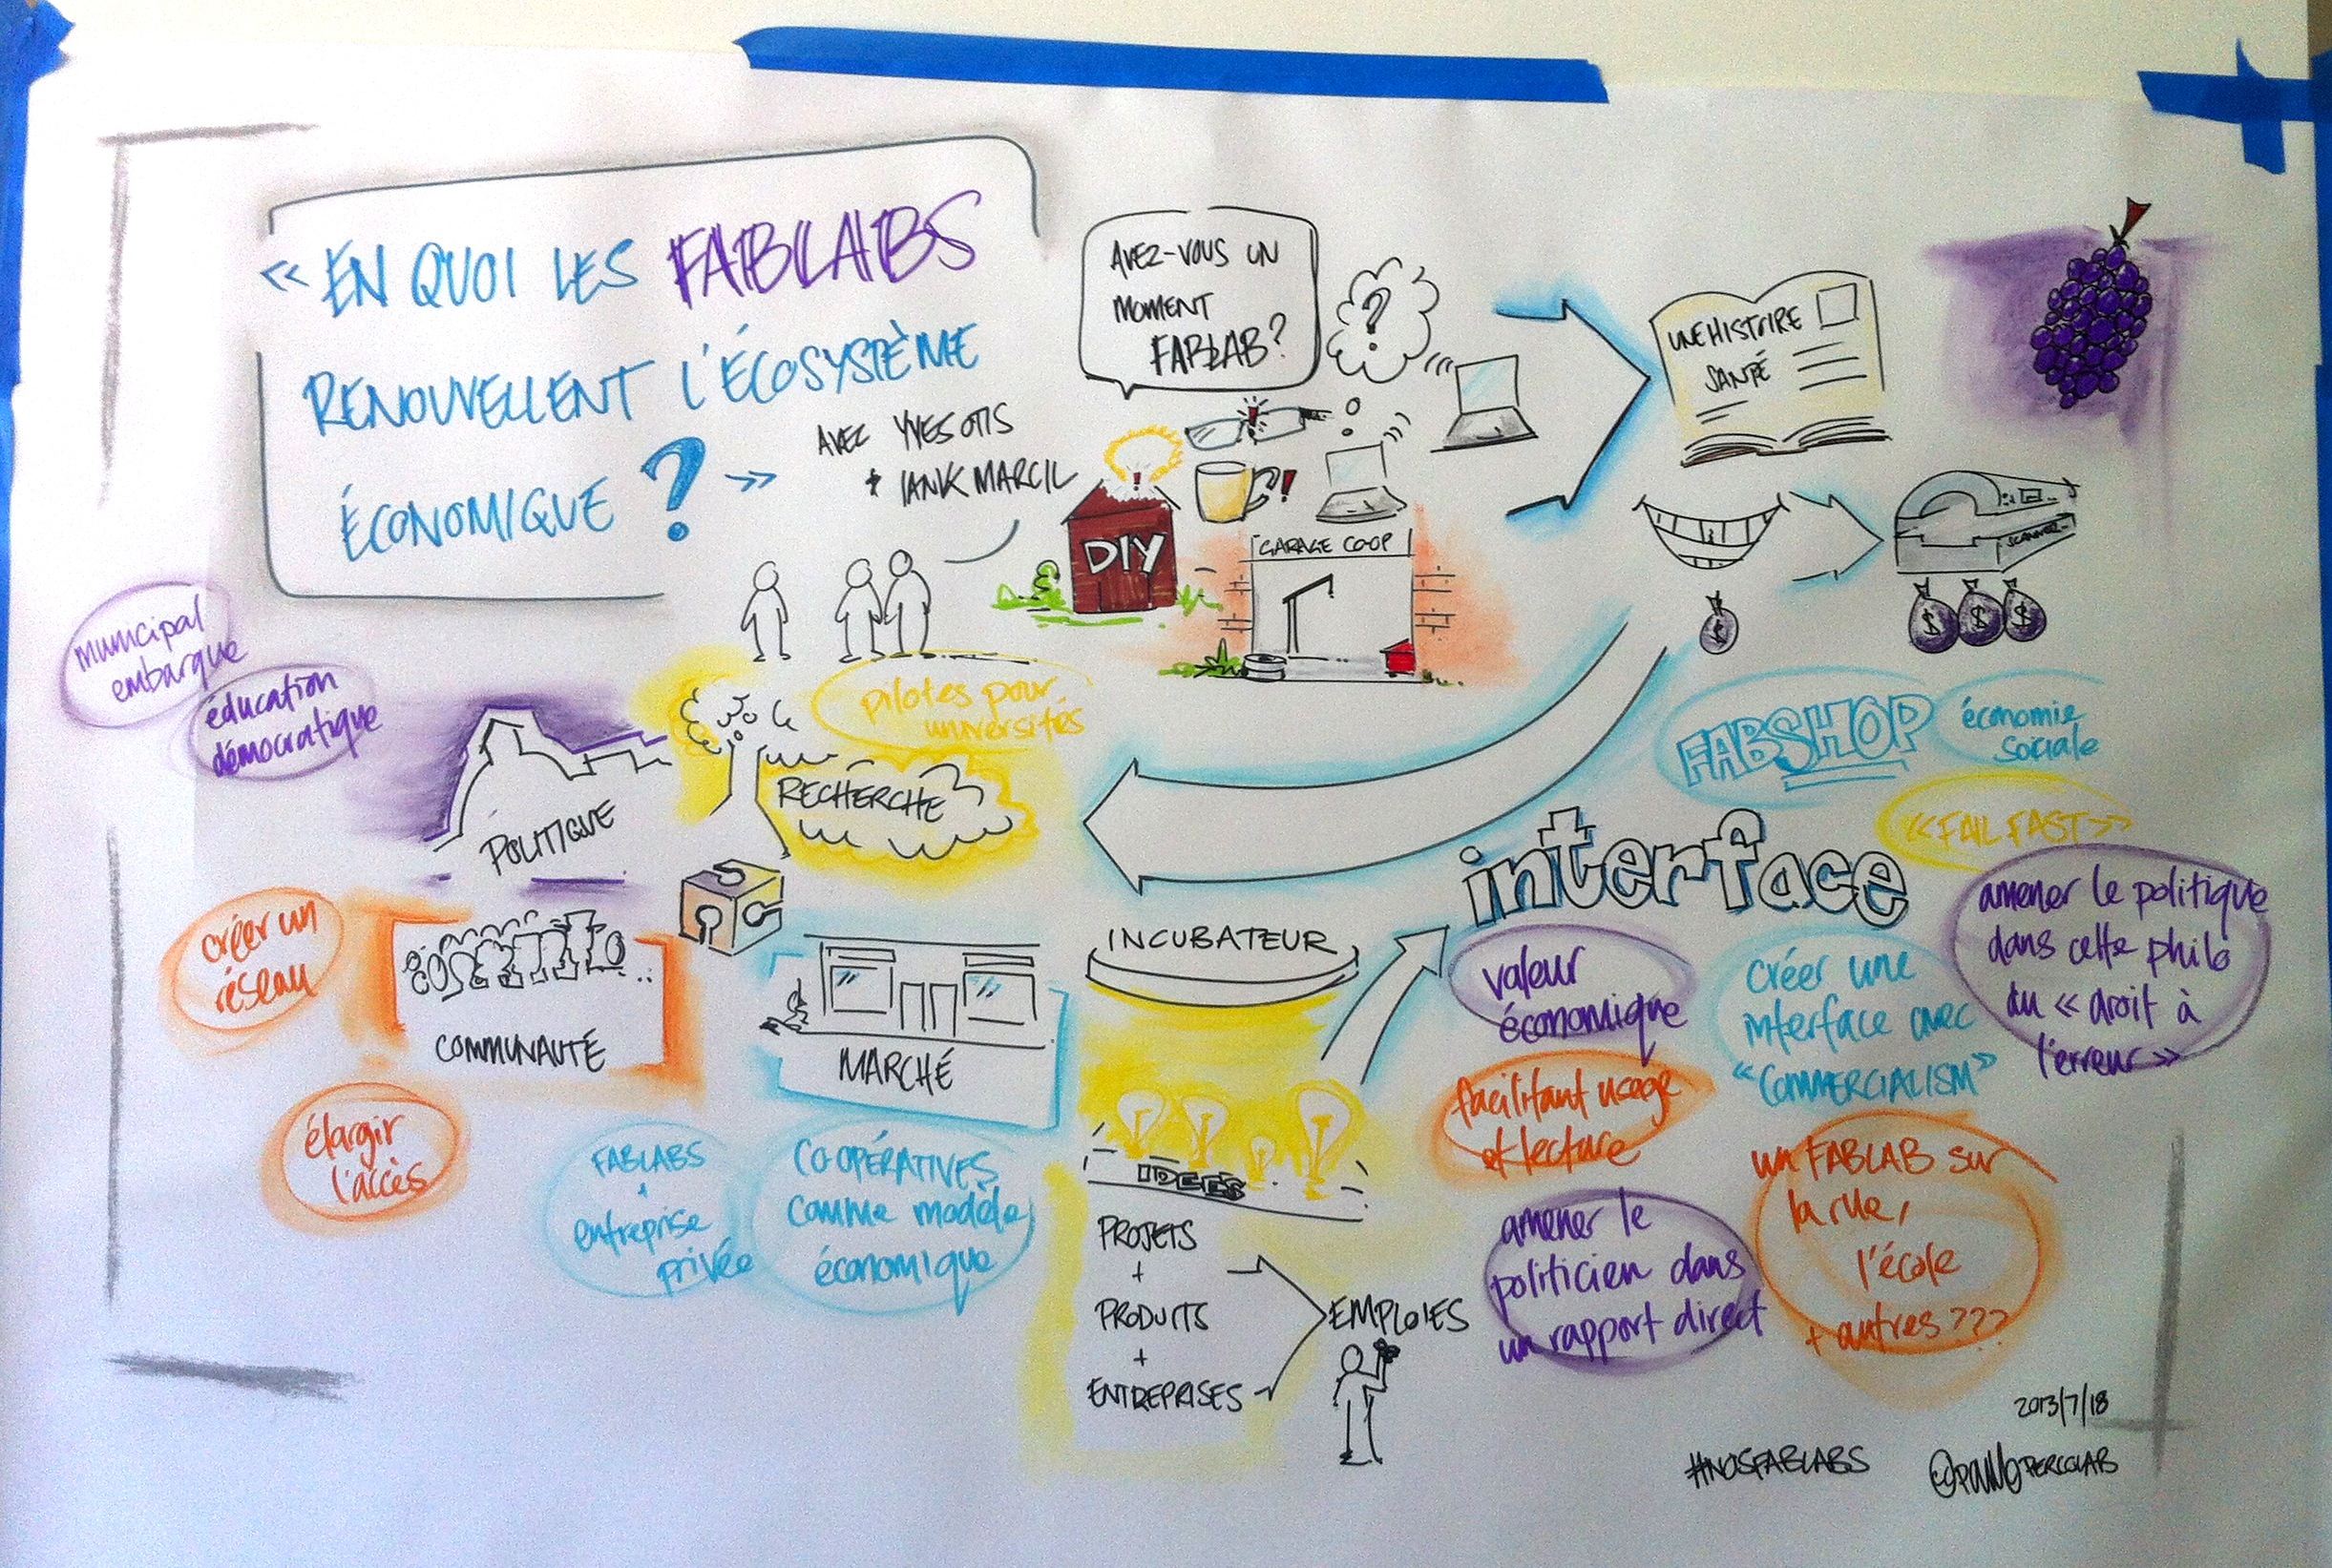 « EN QUOI LES FABLABS
RENOUVELLENT L'ÉCOSYSTÈME
ÉCONOMIQUE ? »
AVEC YVES OTIS
+ IANIK MARCIL
AVEZ-VOUS UN
MOMENT
FABLAB?
?
!
!
!
DIY
GARAGE CO-OP
UNE HISTOIRE
SANTÉ
SCANNER
$
$ $ $
municipal
embarque
éducation
démocratique
POLITIQUE
pilotes pour
universités
RECHERCHE
créer un
réseau
COMMUNAUTÉ
élargir
l'accès
MARCHÉ
FABLABS
+
entreprise
privée
CO-OPÉRATIVES
comme modèle
économique
INCUBATEUR
IDÉES
PROJETS
+
PRODUITS
+
ENTREPRISES
EMPLOIES
FABSHOP
économie
sociale
«FAIL FAST»
interface
valeur
économique
créer une
interface avec
"COMMERCIALISM"
amener le politique
dans cette philo
du « droit à
l'erreur »
facilitant usage
et lecture
amener le
politicien dans
un rapport direct
un FABLAB sur
la rue,
l'école
+ autres ???
2013/7/18
#NOSFABLABS
PERCOLAB